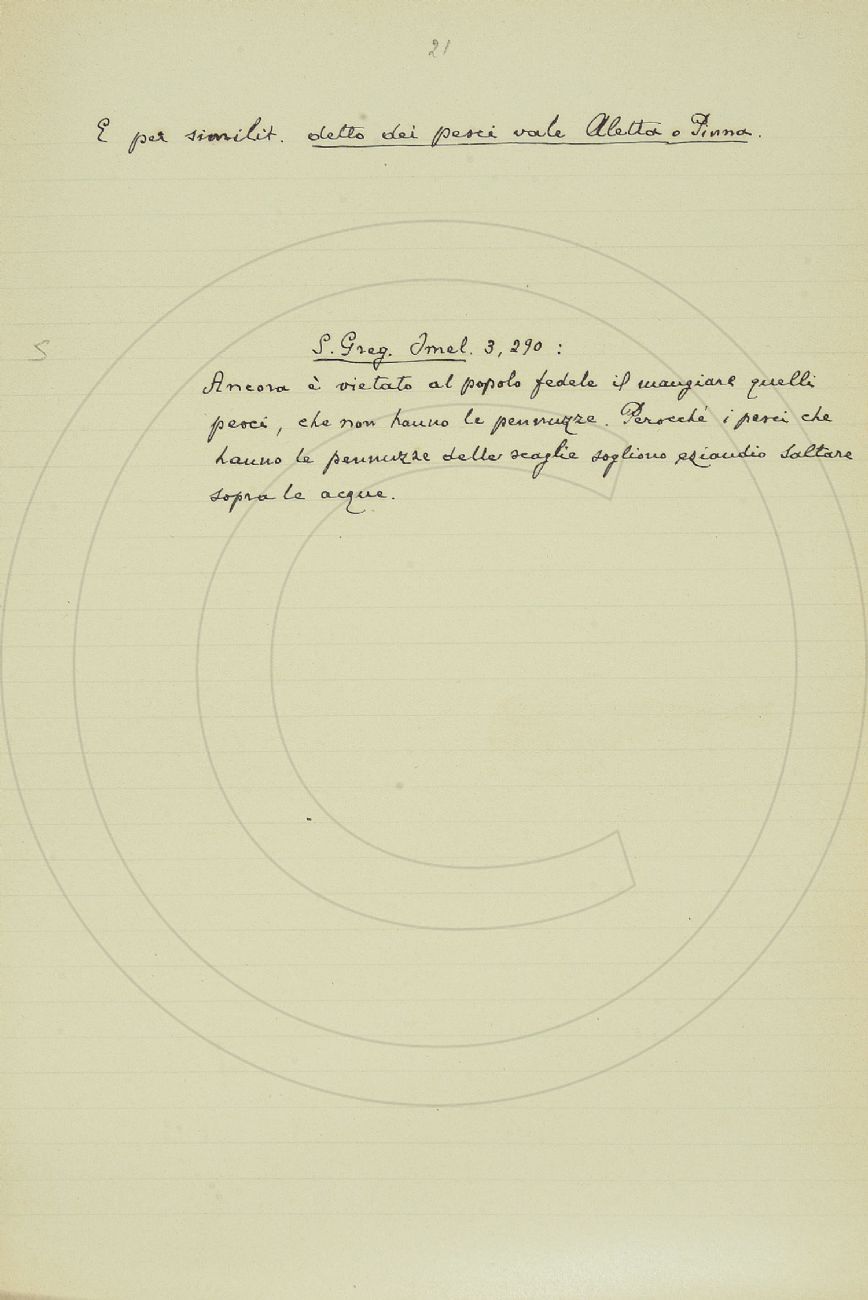 21
E per similit. detto dei pesci vale Aletta o Pinna.
S. Greg. Omel. 3, 290 :
S
Ancora è vietato al popolo fedele il mangiare quelli
pesci, che non hanno le pennuzze. Perocché i pesci che
hanno le pennuzze delle scaglie sogliono eziandio saltare
sopra le acque.